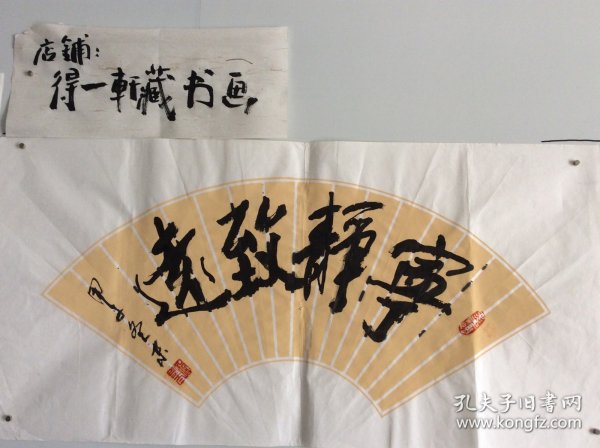 店鋪：
得一軒藏书画
寧靜致遠
孔夫子旧书网
www.kongfz.com